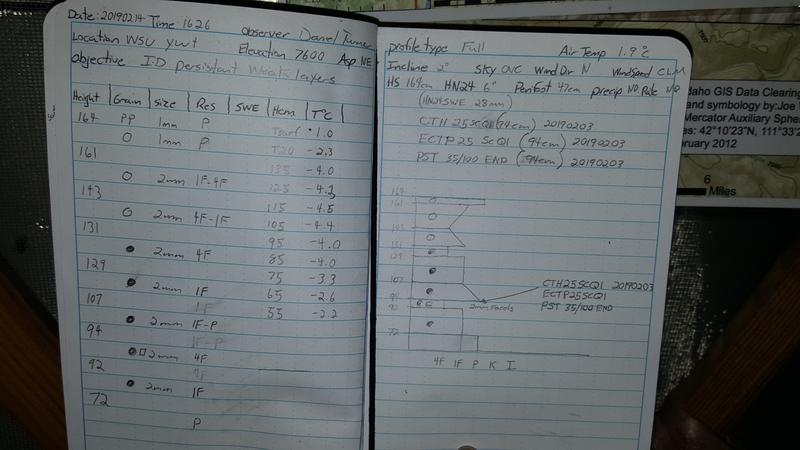 Date: 20190214 Time 1626 observer Daniel Turner
Location WSU yurt Elevation 7600 Asp NE
objective ID persistant Weak layers
Height | Grain | size | Res | SWE | Hcm | T°C
164 PP 1mm P Tsurf -1.0
O 1mm P T20 -2.3
161 135 -4.0
O 2mm 1F-4F 125 -4.3
143 115 -4.5
O 2mm 4F-1F 105 -4.4
131 95 -4.0
2mm 4F 85 -4.0
129 75 -3.3
2mm 1F 65 -2.6
107 1F 55 -2.2
2mm 1F-P
94 1F-P
2mm 4F
92
2mm 1F
72
P
profile type Full Air Temp 1.9°C
Incline 2° Sky OVC Wind Dir N Windspeed CLM
HS 164cm HN24 6" Penfoot 47cm precip NO Rate NO
(HN24SWE 28mm)
CTH 25 SCQ1 (94cm) 20190203
ECTP25 SCQ1 (94cm) 20190203
PST 35/100 END (94cm) 20190203
164
161
143
131
129
107
94
92
72
CTH25SCQ1 20190203
ECTP25SCQ1
PST 35/100 END
2mm Facets
4F 1F P K I
daho GIS Data Clearing
and symbology by:Joe
Mercator Auxiliary Sphe
es: 42°10'23"N, 111°33'2
ruary 2012
6
Miles